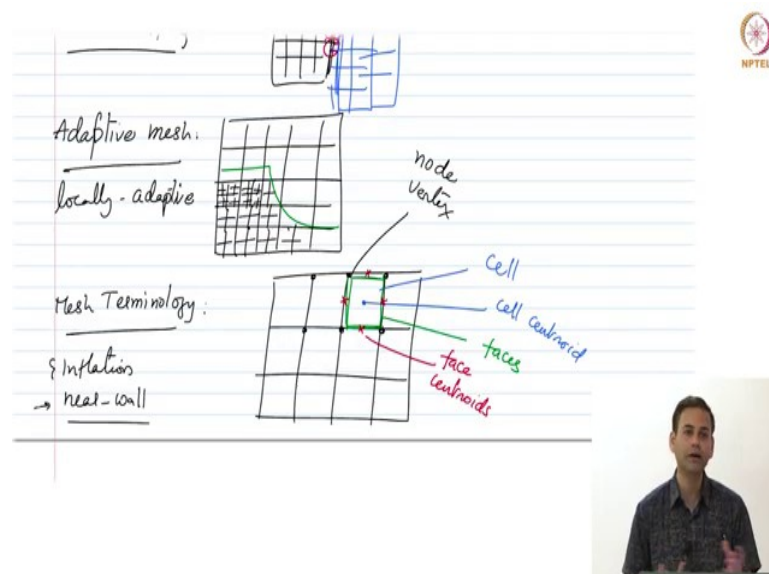 NPTEL
Adaptive mesh:
locally-adaptive
node
vertex
Mesh Terminology:
cell
cell centroid
faces
face
centroids
Inflation
→ near-wall